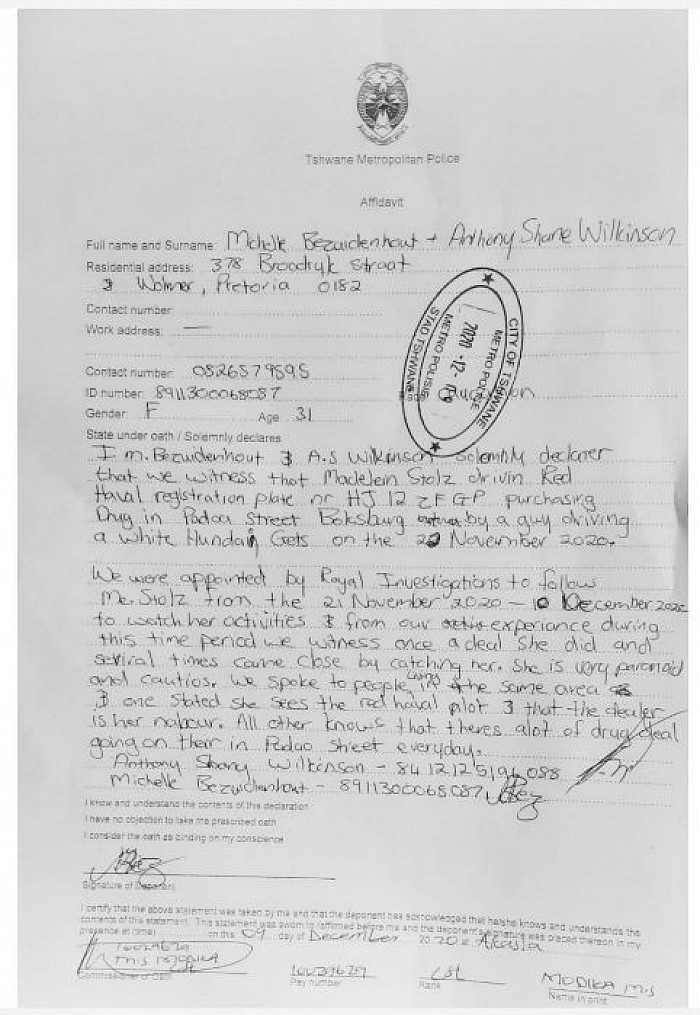 Tshwane Metropolitan Police
Affidavit
Full name and Surname: Michelle Bezuidenhout + Anthony Shane Wilkinson
Residential address: 378 Broodryk straat
Wolmer, Pretoria 0182
Contact number:
Work address: —
Contact number: 0826579595
ID number: 8911300068087
Gender: F Age 31
CITY OF TSHWANE
METRO POLICE
2020-12-09
METRO POLISIE
STAD TSHWANE
State under oath / Solemnly declares
I m. Bezuidenhout & A.S Wilkinson solembly declarer
that we witness that Madelein Stolz drivin Red
Haval registration plate nr HJ 12 ZF GP purchasing
Drug in Padoa Street Boksburg by a guy driving
a white Hundai Gets on the November 2020.
We were appointed by Royal Investigations to follow
Me. Stolz from the 21 November 2020 - 10 December 2020
to watch her activities & from our experiance during
this time period we witness once a deal she did and
seviral times came close by catching her. She is very paranoid
and cautios. We spoke to people living in the same area
& one stated she sees the red haval alot & that the dealer
is her nabour. All other knows that theres alot of drug deal
going on their in Padao street everyday.
Anthony Shany Wilkinson - 8412125194088
Michelle Bezuidenhout - 8911300068087
I know and understand the contents of this declaration
I have no objection to take the prescribed oath
I consider the oath as binding on my conscience
Signature of Deponent
I certify that the above statement was taken by me and that the deponent has acknowledged that he/she knows and understands the
contents of this statement. This statement was sworn to /affirmed before me and the deponent's signature was placed thereon in my
presence at (time) on this 09 day of December 2020 at Akasia
Commissioner of Oath Pay number Rank MODIKA M.S
Name in print